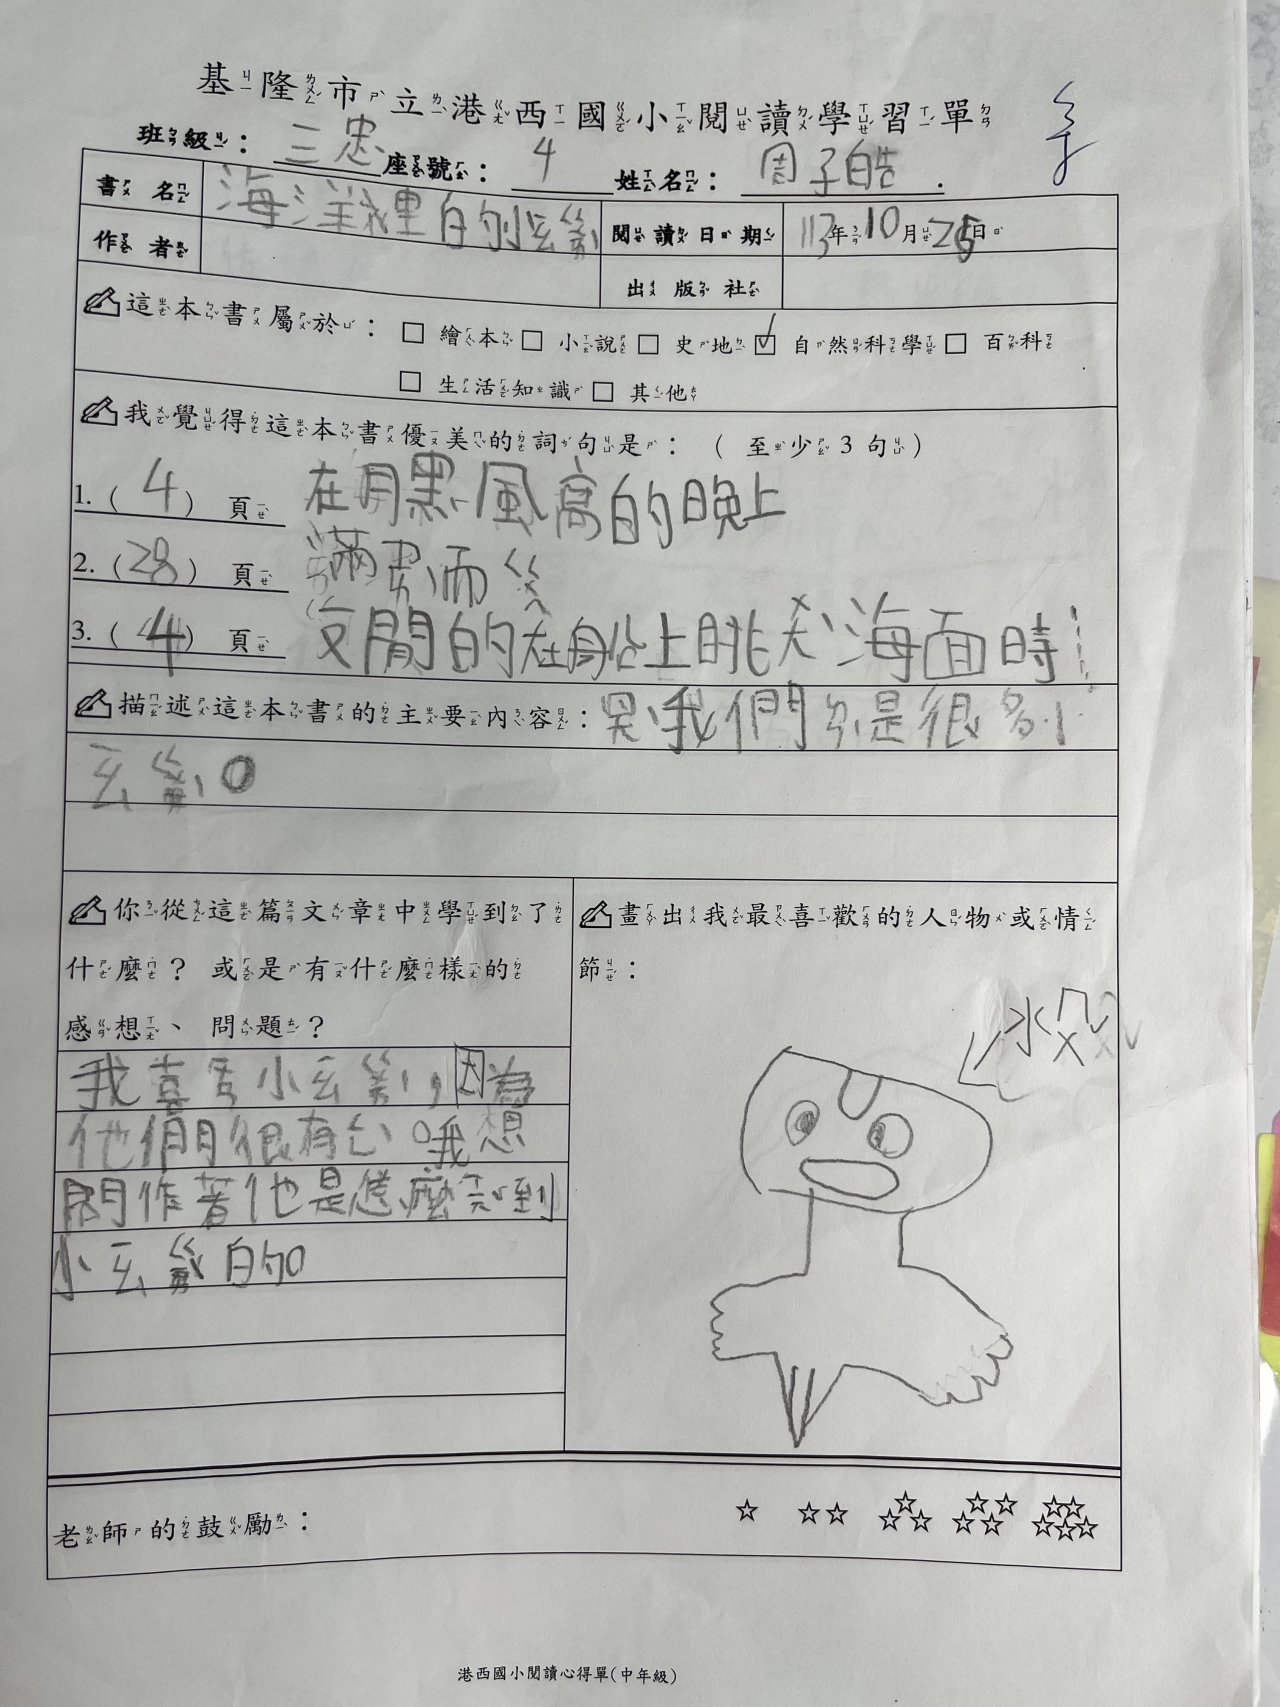 基隆市立港西國小閱讀學習單
班級：三忠 座號：4 姓名：周子皓.
書名 海洋裡的小玄
閱讀日期 113年10月25日
作者
出版社
這本書屬於：□繪本□小說□史地☑自然科學□百科
□生活知識□其他
我覺得這本書優美的詞句是：（至少3句）
1.（4）頁 在月黑風高的晚上
2.（28）頁 滿 而ㄍㄨㄟ
3.（4）頁 閒的在船上眺 海面時
描述這本書的主要內容：是我們 是很多小
玄 。
你從這篇文章中學到了
什麼？或是有什麼樣的
感想、問題？
我喜 小玄 ，因為
他們很有 。我想
問作者他是怎麼 到
小玄 的。
畫出我最喜歡的人物或情
節：
水ㄇㄨˇ
老師的鼓勵：
☆ ☆☆ ☆☆☆ ☆☆☆☆ ☆☆☆☆☆
港西國小閱讀心得單(中年級)